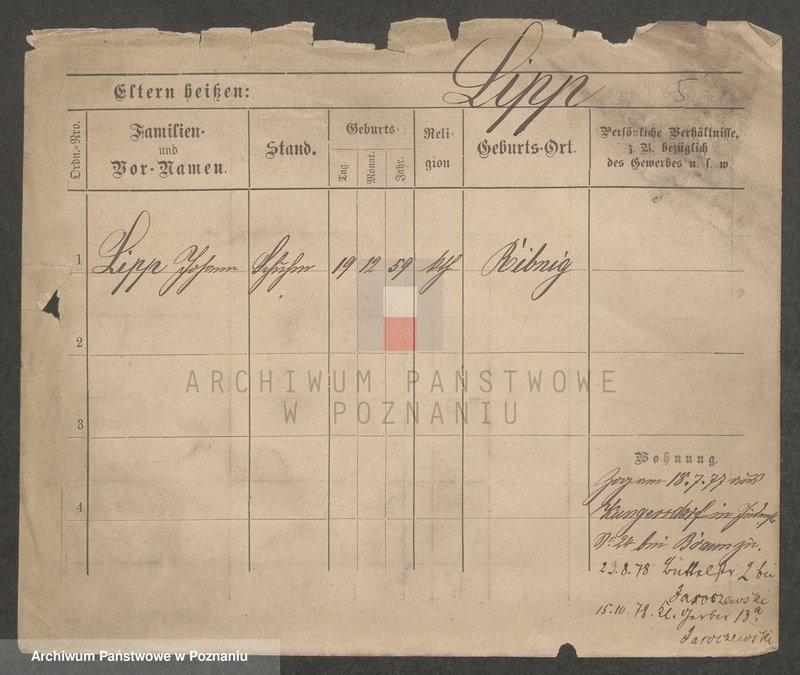 Lipp
5
Eltern heißen:
Ordn.-Nro.
Familien-
und
Vor-Namen.
Stand.
Geburts-
Tag
Monat.
Jahr.
Reli-
gion
Geburts-Ort.
Persönliche Verhältnisse,
z. B. bezüglich
des Gewerbes u. s. w.
1 Lipp Johann Schuhm 19 12 59 kth Ribnig
2
3
4
ARCHIWUM PAŃSTWOWE
W POZNANIU
Wohnung.
Zog am 18.7.77 aus
in
No 24 bei
23.8.78 Büttelstr. 2 bei
Jaroczewski
15.10.78. Kl. Gerber 13a
Jaroczewski
Archiwum Państwowe w Poznaniu